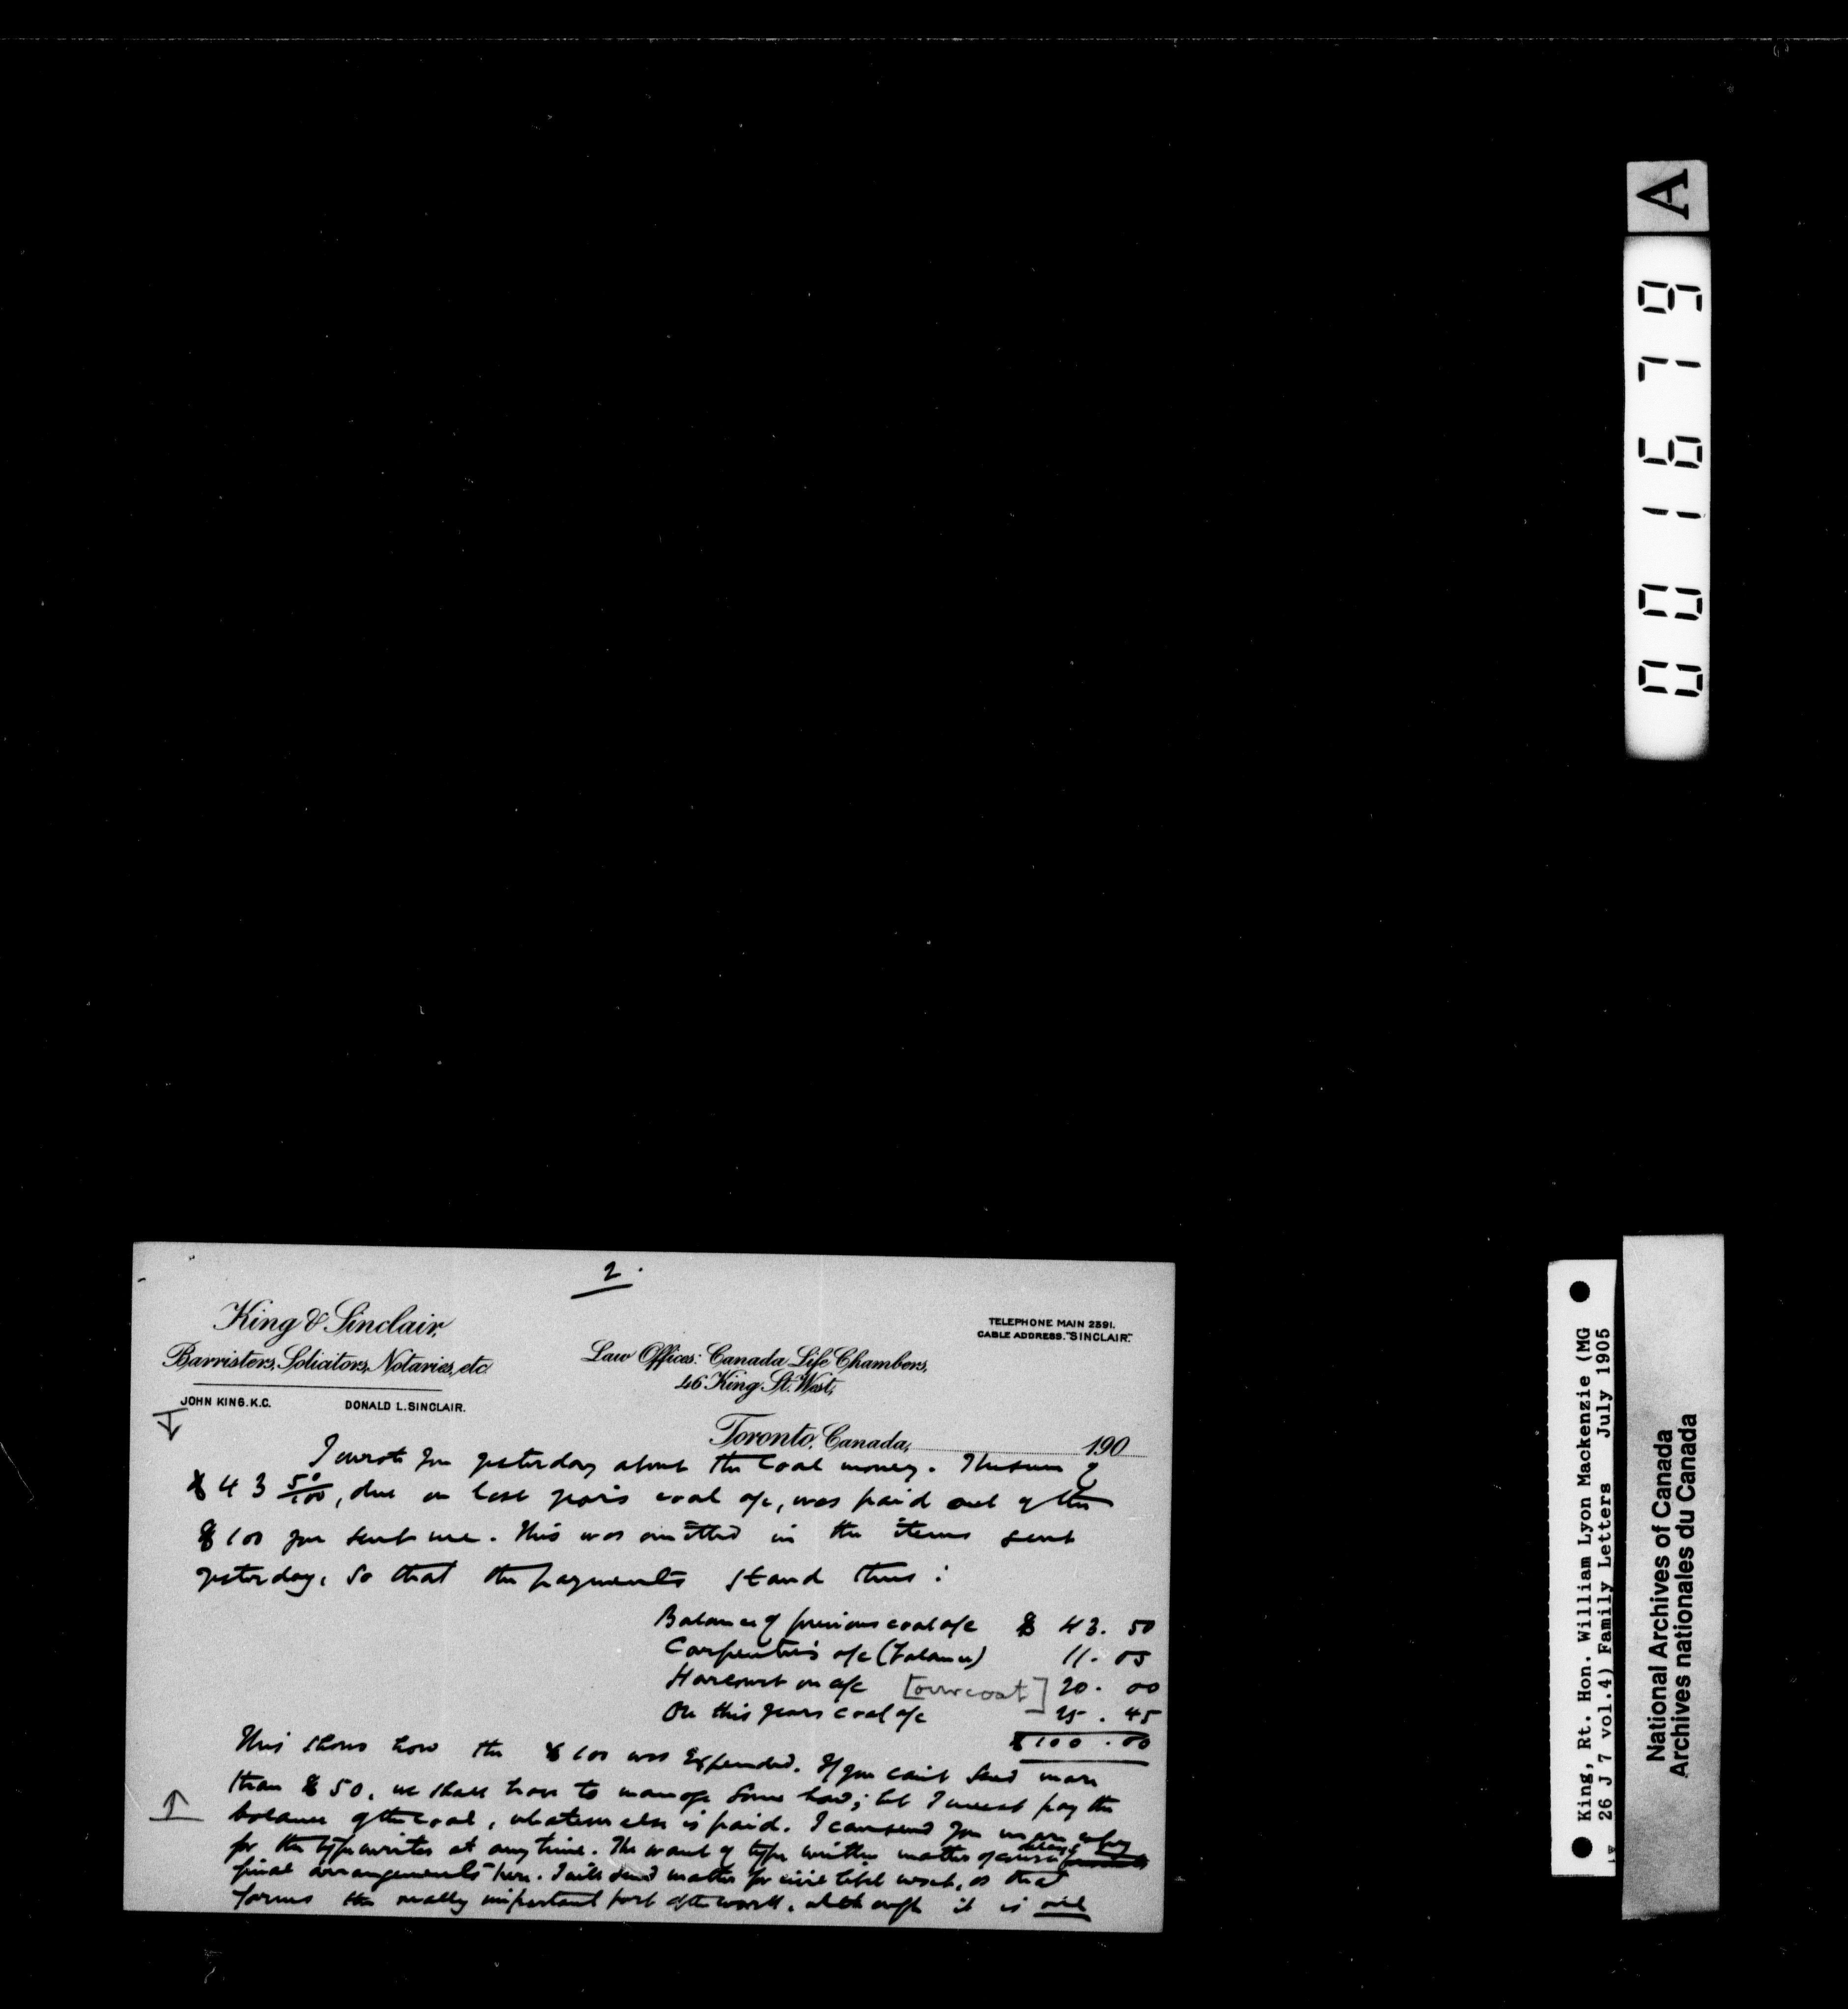 2.
King & Sinclair,
Barristers, Solicitors, Notaries, etc
JOHN KING. K.C. DONALD L. SINCLAIR.
Law Offices: Canada Life Chambers,
46 King St. West,
TELEPHONE MAIN 2391.
CABLE ADDRESS. "SINCLAIR."
Toronto, Canada, 190
I wrote you yesterday about the coal money. The sum of
$43 50/100, due on last year's coal a/c, was paid out of the
$100 you sent me. This was omitted in the items sent
yesterday, so that the payments stand thus:
Balance of previous coal a/c $ 43. 50
Carpenter's a/c (balance) 11. 05
Harcourt on a/c [overcoat] 20. 00
On this years coal a/c 25. 45
$100.00
This shows how the $100 was expended. If you can't send more
than $50, we shall have to manage some how; but I must pay the
balance of the coal, whatever else is paid. I can send you more copy
for the typewriter at any time. The want of type written matter of course delays
final arrangements here. I will send matter for civil libel next, as that
forms the really important part of the work, although it is all
A
001679
King, Rt. Hon. William Lyon Mackenzie (MG
26 J 7 vol.4) Family Letters July 1905
National Archives of Canada
Archives nationales du Canada